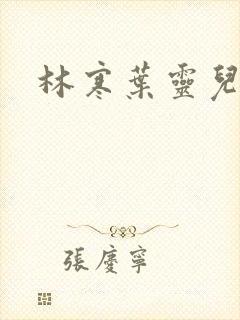 林寒葉靈兒
張慶寧